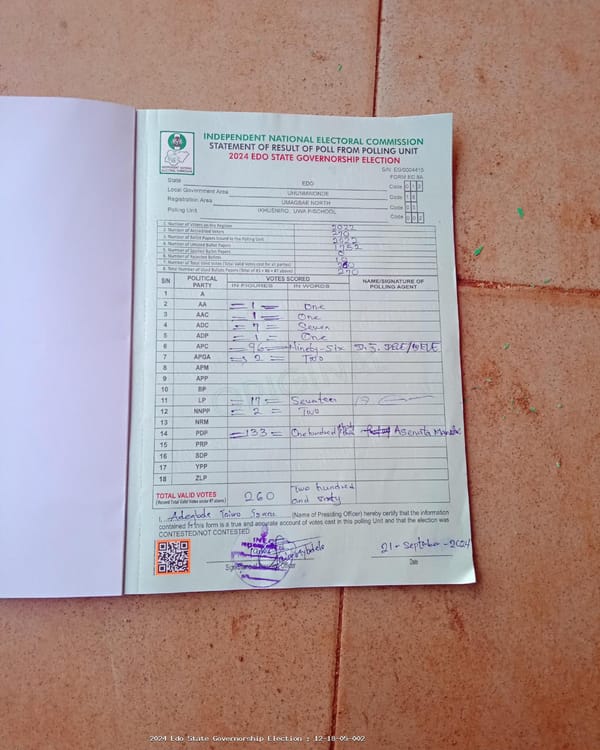 INDEPENDENT NATIONAL ELECTORAL COMMISSION
STATEMENT OF RESULT OF POLL FROM POLLING UNIT
2024 EDO STATE GOVERNORSHIP ELECTION
S/N: EG/0004415
FORM EC 8A
State EDO Code 0 1 2
Local Government Area UHUNMWONDE Code 1 8
Registration Area UMAGBAE NORTH Code 0 5
Polling Unit IKHUENIRO, UWA P/SCHOOL Code 0 0 2
1. Number of Voters on the Register 2022
2. Number of Accredited Voters 270
3. Number of Ballot Papers Issued to the Polling Unit 2022
4. Number of Unused Ballot Papers 1752
5. Number of Spoiled Ballot Papers
6. Number of Rejected Ballots 10
7. Number of Total Valid Votes (Total Valid Votes cast for all parties) 260
8. Total Number of Used Ballot Papers (Total of #5 + #6 + #7 above) 270
S/N POLITICAL PARTY VOTES SCORED IN FIGURES IN WORDS NAME/SIGNATURE OF POLLING AGENT
1 A
2 AA =1= One
3 AAC =1= One
4 ADC =7= Seven
5 ADP =1= One
6 APC =96= Ninety-Six
7 APGA =2= Two
8 APM
9 APP
10 BP
11 LP =17= Seventeen
12 NNPP =2= Two
13 NRM
14 PDP =133= One hundred
15 PRP
16 SDP
17 YPP
18 ZLP
TOTAL VALID VOTES 260 Two hundred and sixty
(Record Total Valid Votes under #7 above)
I, Adegbole Taiwo (Name of Presiding Officer) hereby certify that the information
contained in this form is a true and accurate account of votes cast in this polling Unit and that the election was
CONTESTED/NOT CONTESTED
21-September-2024
Date
2024 Edo State Governorship Election : 12-18-05-002